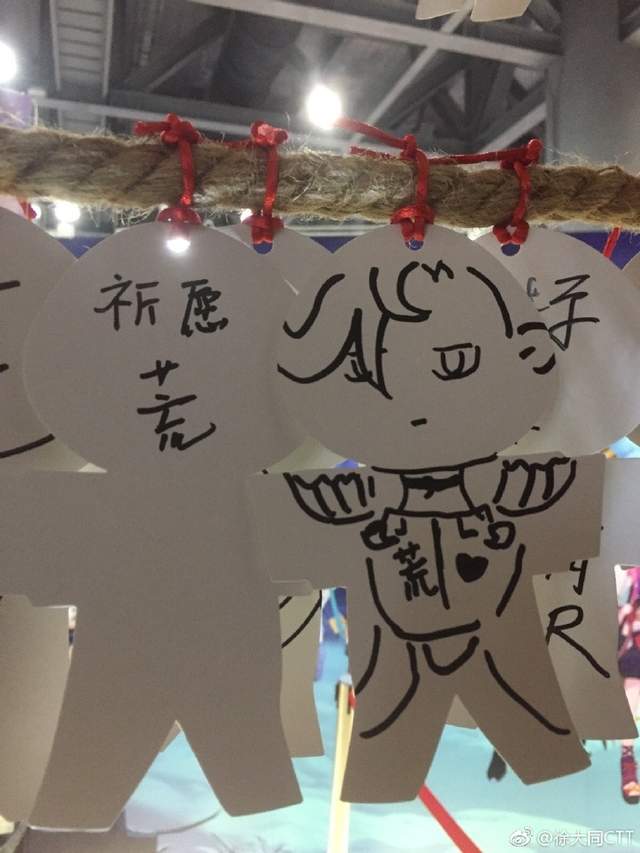 祈愿
荒
荒
R
@徐大同CTT